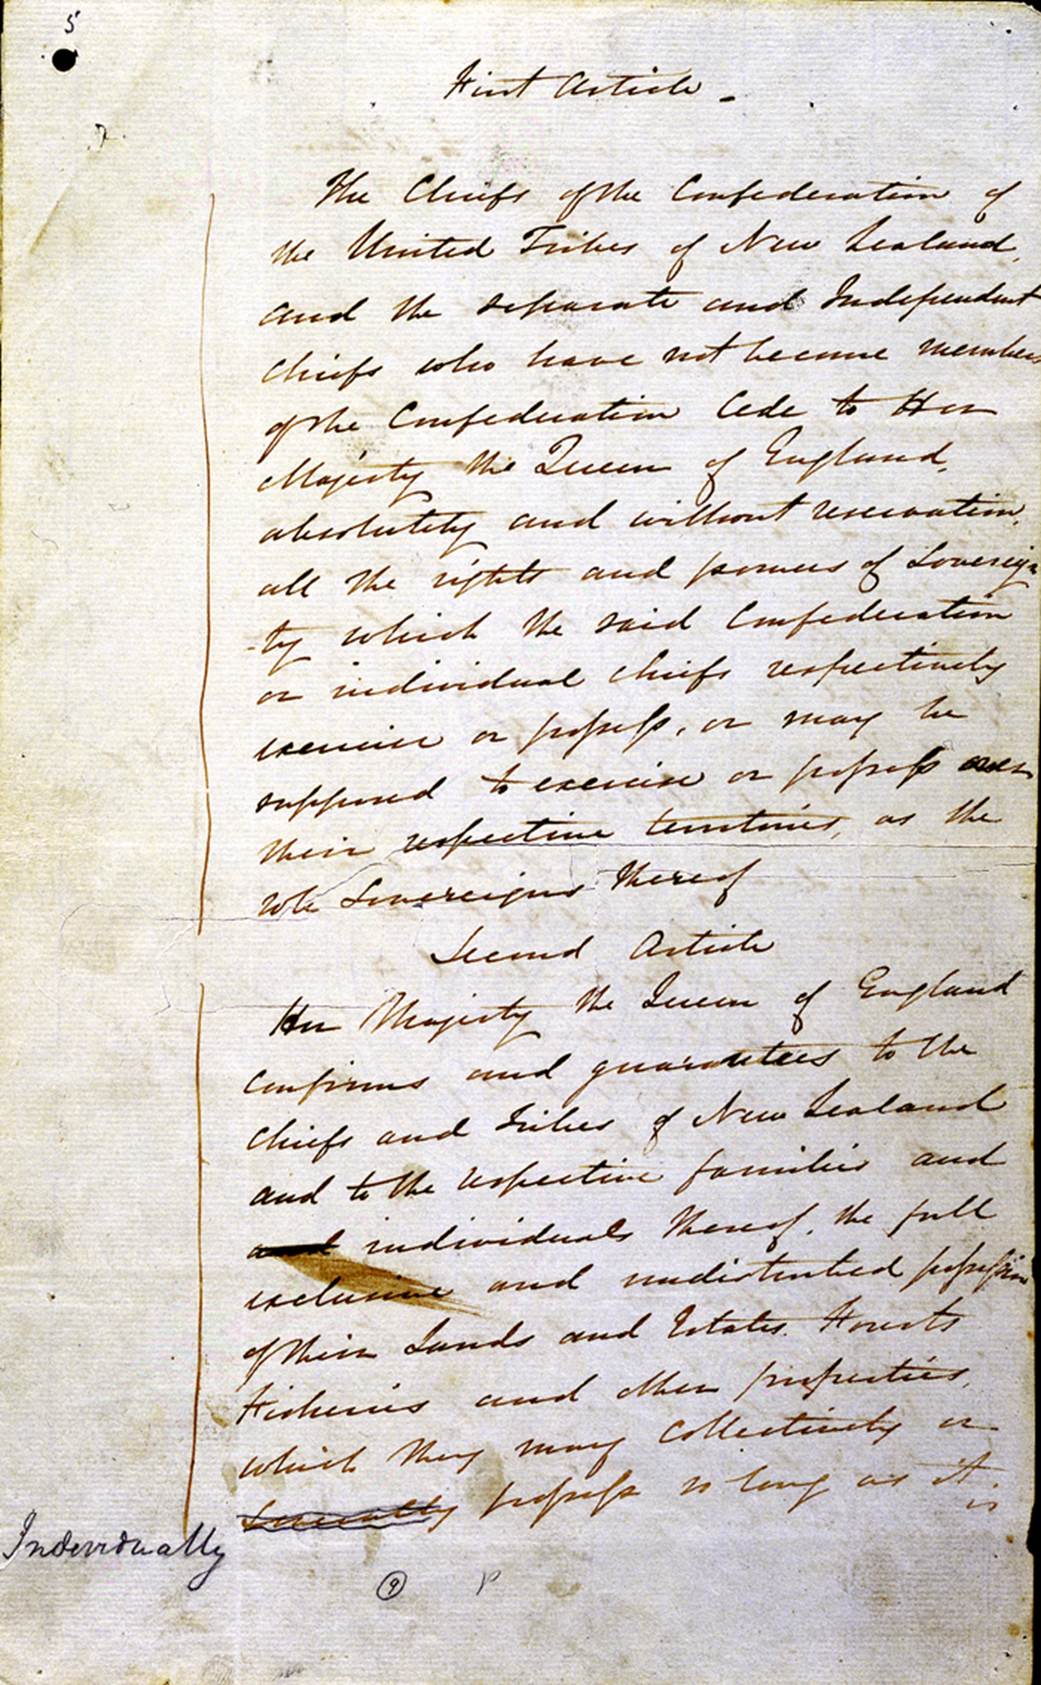 5
First Article -
The Chiefs of the Confederation of
the United Tribes of New Zealand,
and the separate and Independent
Chiefs who have not become members
of the Confederation Cede to Her
Majesty the Queen of England,
absolutely and without reservation,
all the rights and powers of Sovereign
-ty which the said Confederation
or individual Chiefs respectively
exercise or possess, or may be
supposed to exercise or possess over
their respective territories, as the
sole Sovereigns thereof
Second Article
Her Majesty the Queen of England
confirms and guarantees to the
Chiefs and Tribes of New Zealand
and to the respective families and
and individuals thereof, the full
exclusive and undisturbed possession
of their Lands and Estates. Forests
Fisheries and other properties,
which they may collectively or
Severally possess so long as it
is
Individually
9 P